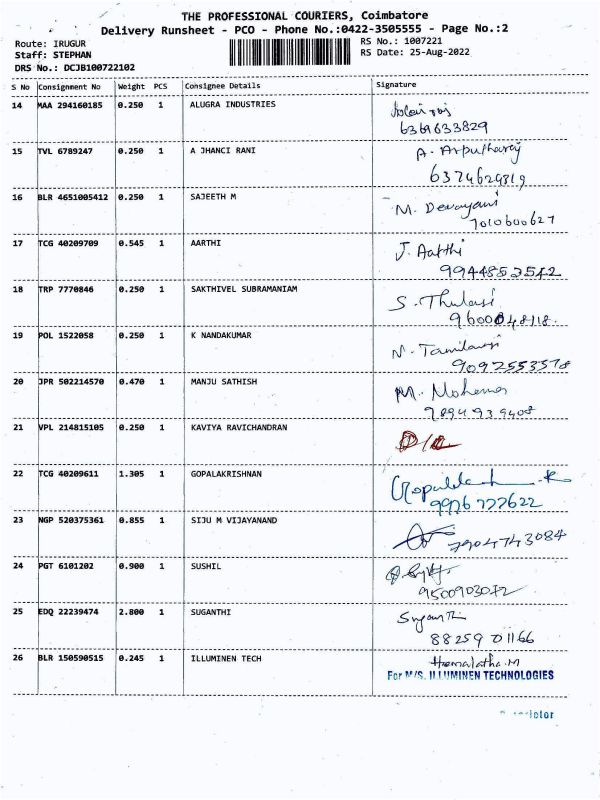 THE PROFESSIONAL COURIERS, Coimbatore
Delivery Runsheet - PCO - Phone No.:0422-3505555 - Page No.:2
Route: IRUGUR
RS No.: 1007221
Staff: STEPHAN
RS Date: 25-Aug-2022
DRS No.: DCJB100722102
S No Consignment No Weight PCS Consignee Details Signature
14 MAA 294160185 0.250 1 ALUGRA INDUSTRIES
6369633829
15 TVL 6789247 0.250 1 A JHANCI RANI A. Arputharaj
6374629819
16 BLR 4651005412 0.250 1 SAJEETH M M. Devayani
7010600627
17 TCG 40209709 0.545 1 AARTHI J. Aarthi
9944852542
18 TRP 7770846 0.250 1 SAKTHIVEL SUBRAMANIAM S. Thulasi
9600048118.
19 POL 1522058 0.250 1 K NANDAKUMAR N. Tamilarasi
9092553578
20 JPR 502214570 0.470 1 MANJU SATHISH M.
9894939408
21 VPL 214815105 0.250 1 KAVIYA RAVICHANDRAN
22 TCG 40209611 1.305 1 GOPALAKRISHNAN
9976777622
23 NGP 520375361 0.855 1 SIJU M VIJAYANAND 7904743084
24 PGT 6101202 0.900 1 SUSHIL
9500903072
25 EDQ 22239474 2.800 1 SUGANTHI Suganthi
88259 01166
26 BLR 150590515 0.245 1 ILLUMINEN TECH Hemalatha.M
For M/S. ILLUMINEN TECHNOLOGIES